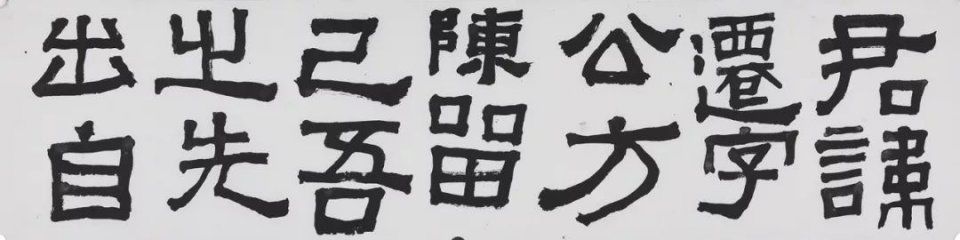 君諱
遷字
公方
陳留
己吾
之先
出自